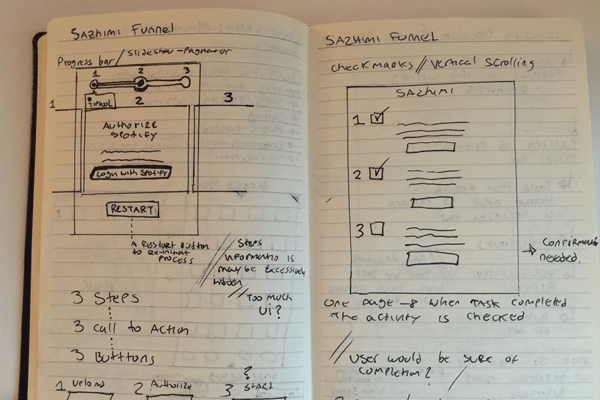 SAZHIMI FUNNEL
Progress bar / Slideshow - Paginator
1 2 3
1 2 3
AUTHORIZE
SPOTIFY
Login with Spotify
RESTART
A RESTART BUTTON
PROCESS
Steps
informatio is
may be excessively
hidden
Too much
UI?
3 Steps
3 Call to Action
3 Buttons
1 Upload 2 Authorize 3 START
?
SAZHIMI FUNNEL
checkmarks // Vertical SCROLLING
SAZHIMI
1
2
3
→ Confirmation
needed.
ONE page → when TASK completed
The activity is checked
// USER would be SURE OF
COMPLETION?